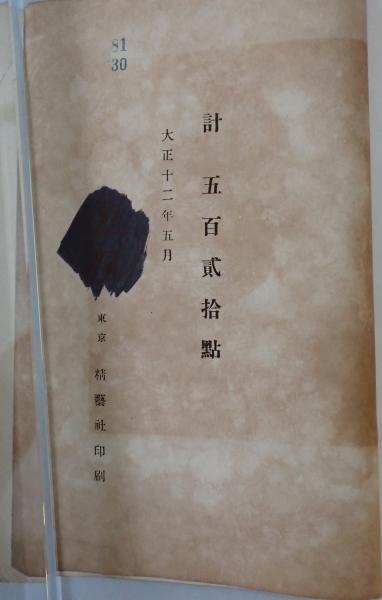 81
30
計五百貳拾點
大正十二年五月
東京 精藝社印刷